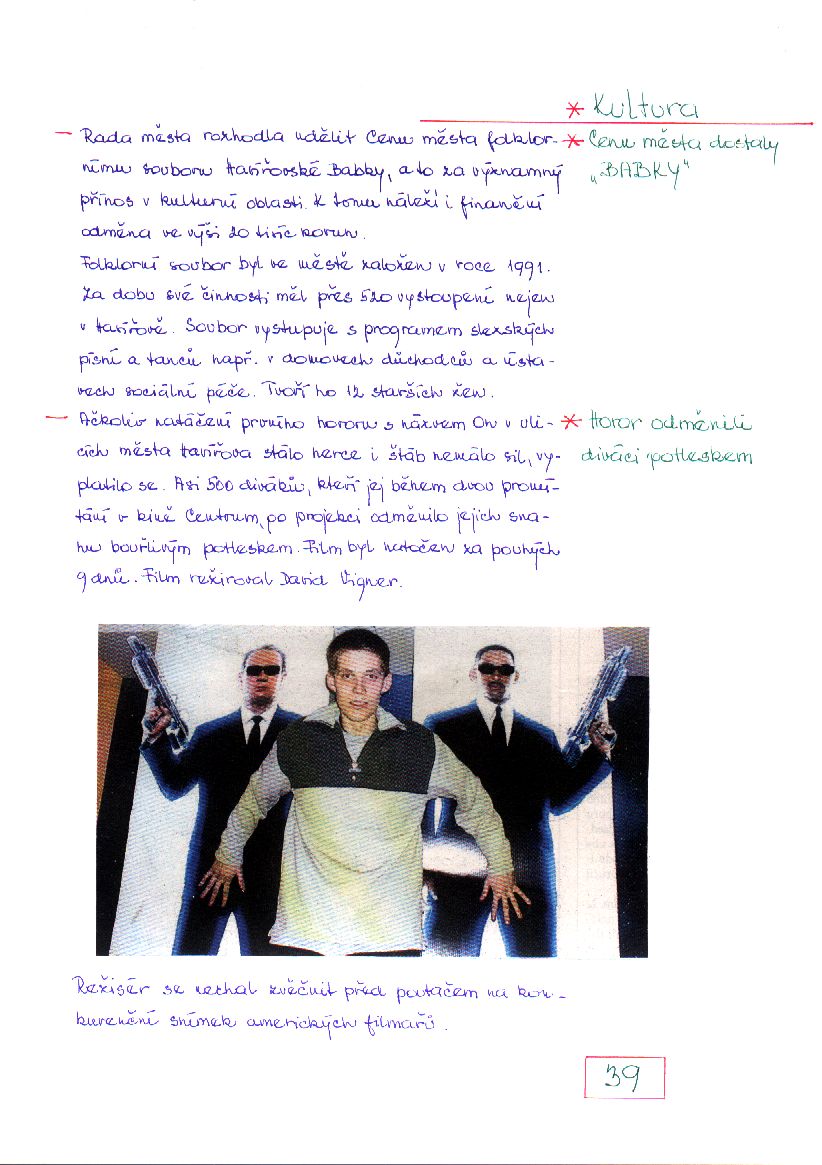 * Kultura
— Rada města rozhodla udělit Cenu města folklor-
nímu souboru Havířovské Babky, a to za významný
přínos v kulturní oblasti. K tomu náleží i finanční
odměna ve výši 20 tisíc korun.
Folklorní soubor byl ve městě založen v roce 1991.
Za dobu své činnosti měl přes 520 vystoupení nejen
v Havířově. Soubor vystupuje s programem slezských
písní a tanců např. v domovech důchodců a ústa-
vech sociální péče. Tvoří ho 12 starších žen.
* Cenu města dostaly
„BABKY"
— Ačkoliv natáčení prvního hororu s názvem On v uli-
cích města Havířova stálo herce i štáb nemálo sil, vy-
platilo se. Asi 500 diváků, kteří jej během dvou promí-
tání v kině Centrum, po projekci odměnilo jejich sna-
hu bouřlivým potleskem. Film byl natočen za pouhých
9 dnů. Film režíroval David Vigner.
* Horor odměnili
diváci potleskem
Režisér se nechal zvěčnit před poutačem na kon-
kurenční snímek amerických filmařů.
39